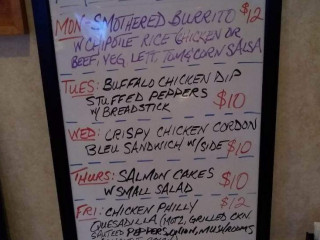 MON: SMOTHERED BURRITO $12
W CHIPOTLE RICE CHICKEN OR
BEEF, VEG LETT, TOM & CORN SALSA
TUES: BUFFALO CHICKEN DIP
STUFFED PEPPERS
W/ BREADSTICK $10
WED: CRISPY CHICKEN CORDON
BLEU SANDWICH W/SIDE $10
THURS: SALMON CAKES
W SMALL SALAD $10
FRI: CHICKEN PHILLY $12
QUESADILLA (MOTZ, GRILLED CKN,
PEPPERS, ONION, MUSHROOMS